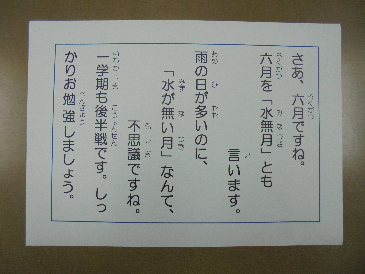 さあ、六月ですね。
六月を「水無月」とも
言います。
雨の日が多いのに、
「水が無い月」なんて、
不思議ですね。
一学期も後半戦です。しっ
かりお勉強しましょう。